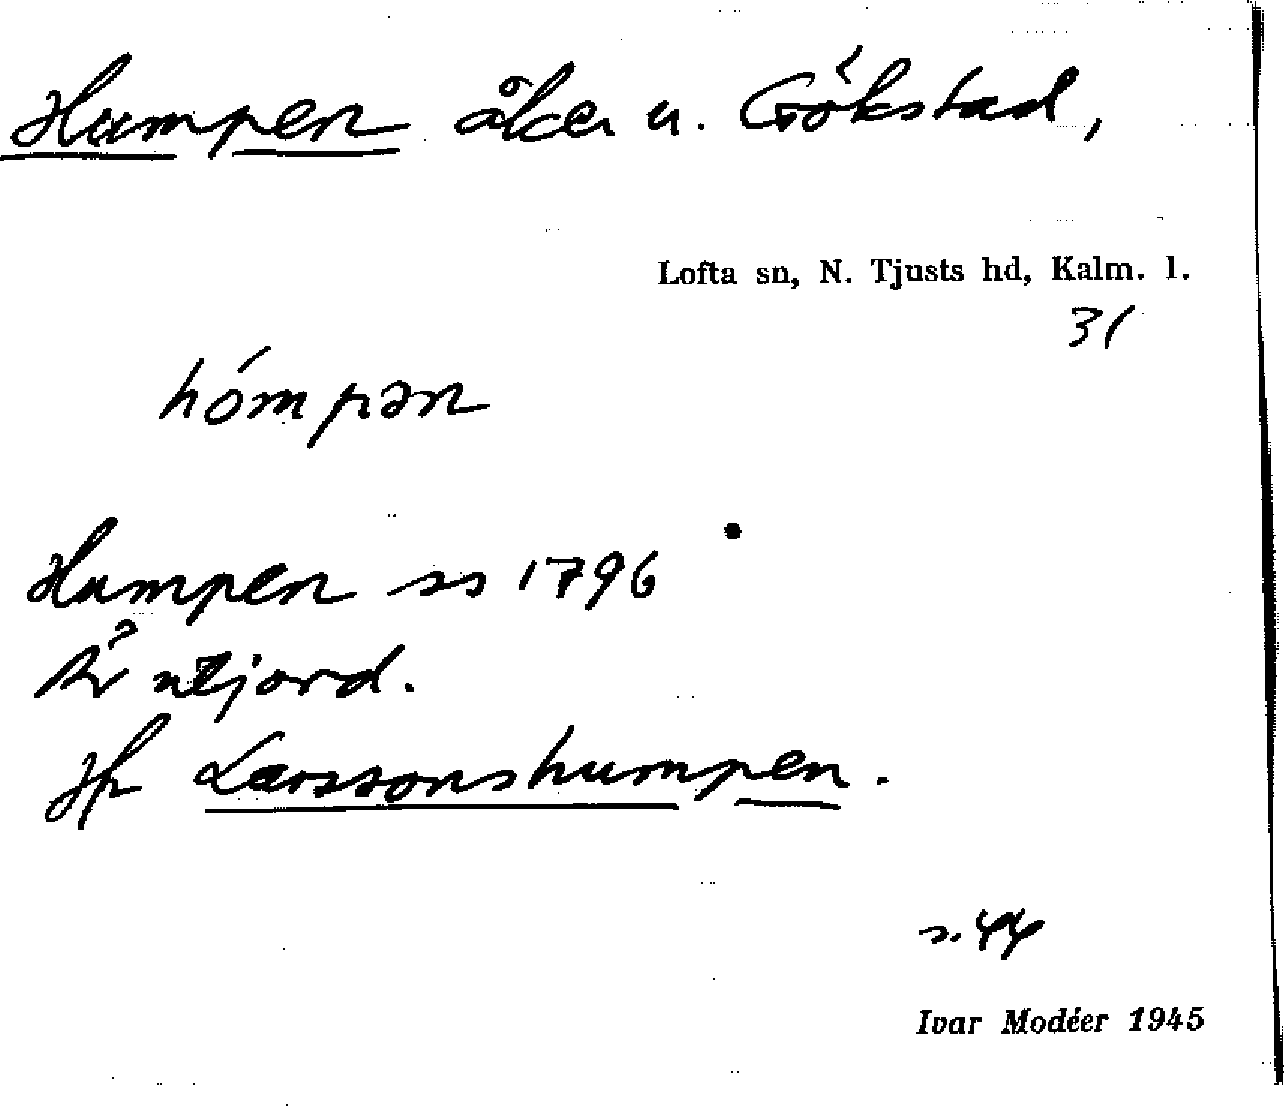 Humpen åker u. Gökstad,
Lofta sn, N. Tjusts hd, Kalm. l.
31
hómpən
Humpen ss 1796
Är utjord.
Jfr Larssonshumpen.
s. 44
Ivar Modéer 1945